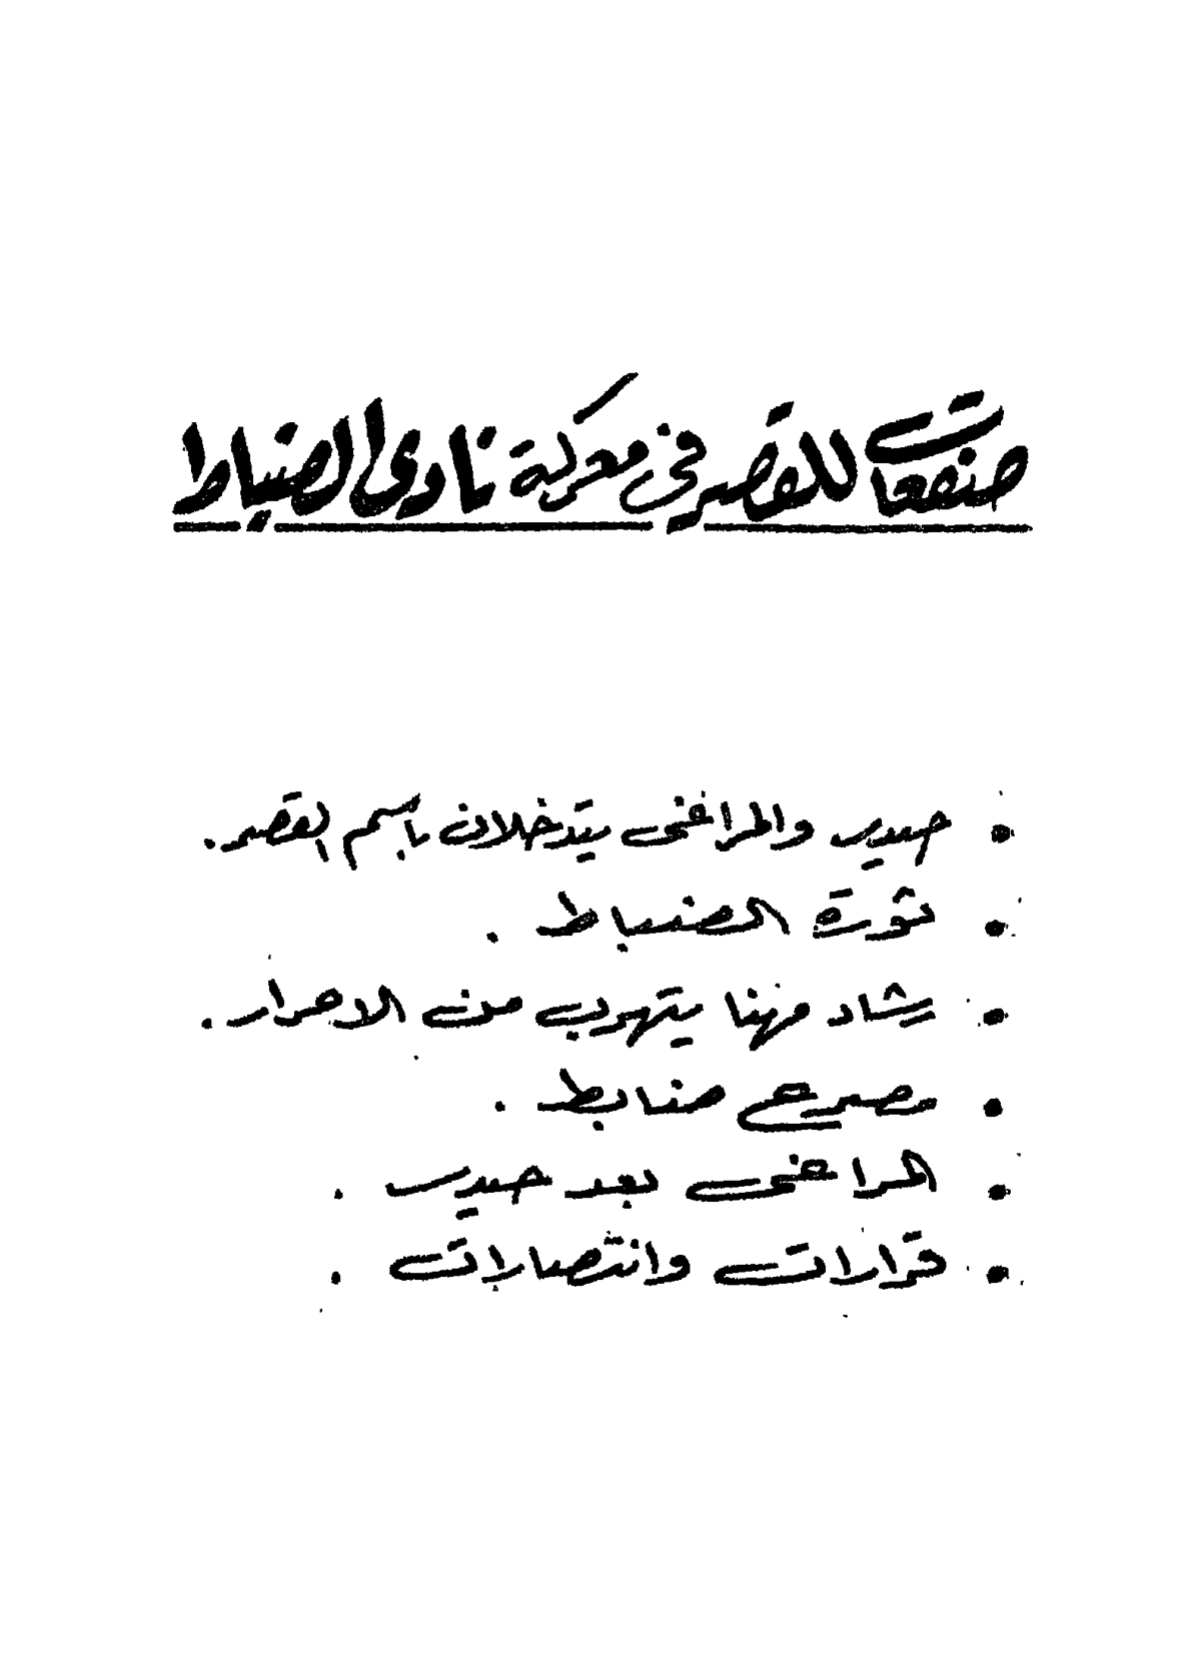 صفعات للقصر فى معركة نادى الضباط
• حيدر والمراغى يتدخلان باسم القصر .
• ثورة الضباط .
• رشاد مهنا يتهرب من الاحرار .
• مصرع ضابط .
• المراغى بعد حيدر .
• قرارات وانتصارات .